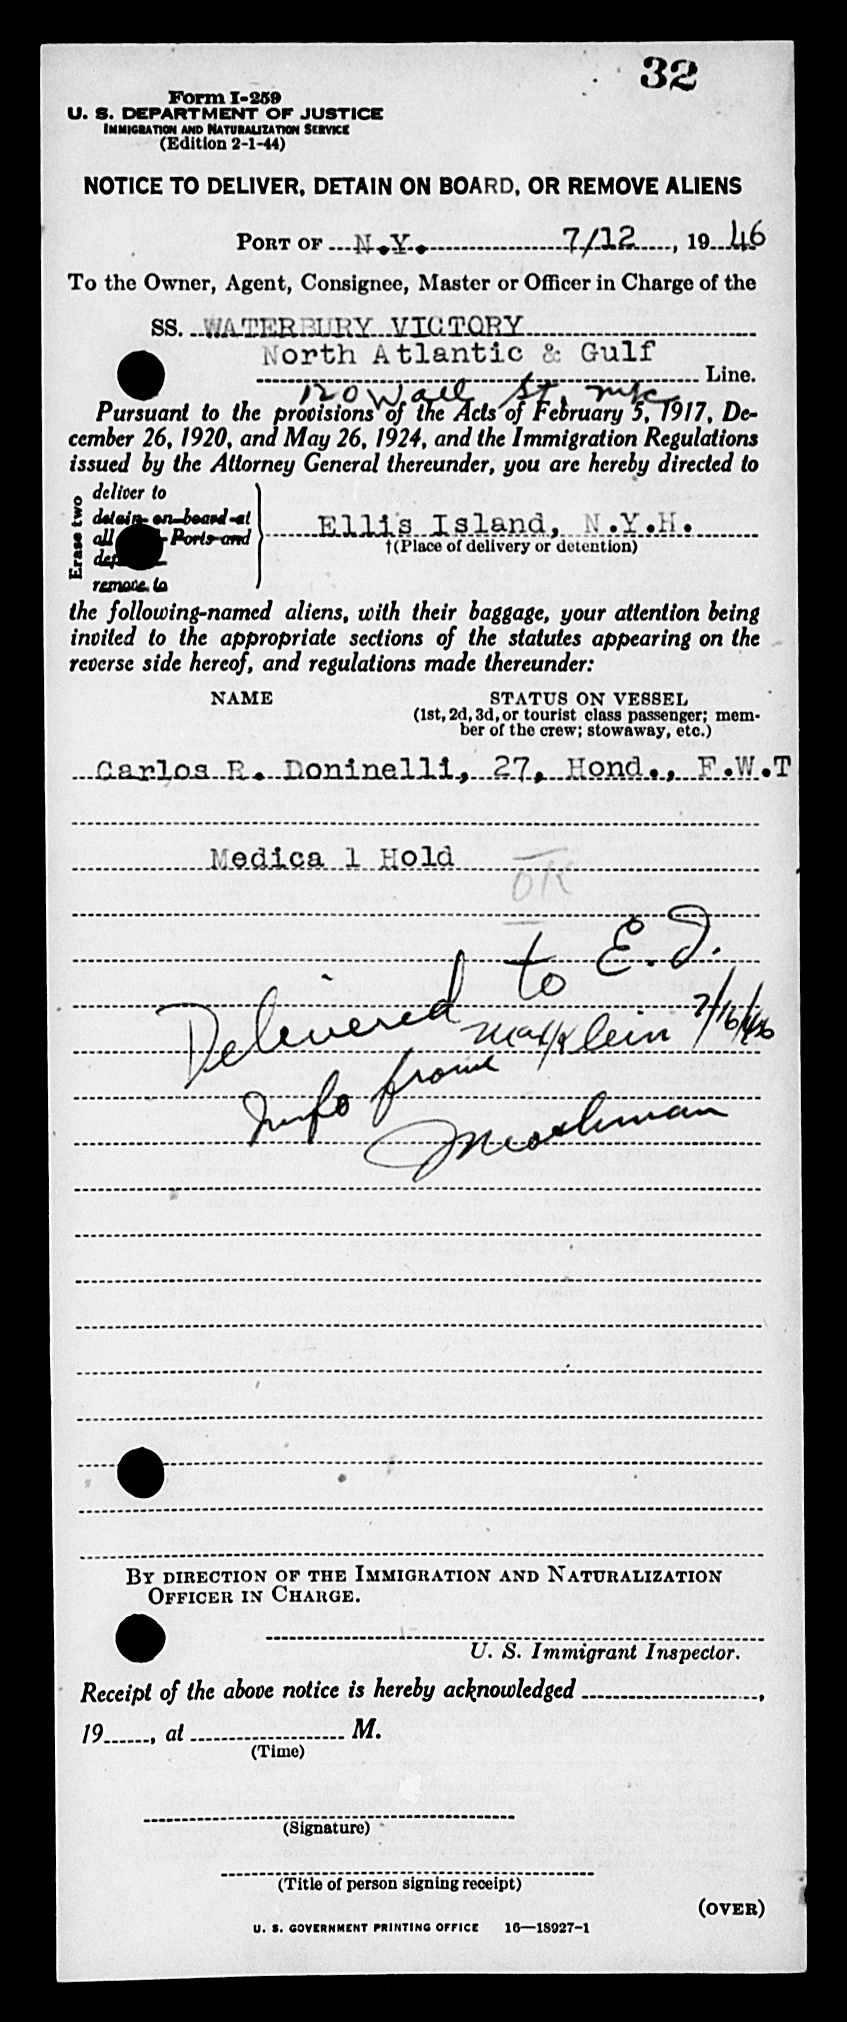 32
Form I-259
U. S. DEPARTMENT OF JUSTICE
IMMIGRATION AND NATURALIZATION SERVICE
(Edition 2-1-44)
NOTICE TO DELIVER, DETAIN ON BOARD, OR REMOVE ALIENS
PORT OF N.Y. 7/12, 1946
To the Owner, Agent, Consignee, Master or Officer in Charge of the
SS. WATERBURY VICTORY
North Atlantic & Gulf
Line.
120 Wall St.
Pursuant to the provisions of the Acts of February 5, 1917, De-
cember 26, 1920, and May 26, 1924, and the Immigration Regulations
issued by the Attorney General thereunder, you are hereby directed to
Erase two
deliver to
detain on board at
all Ports and
remove to
Ellis Island, N.Y.H.
†(Place of delivery or detention)
the following-named aliens, with their baggage, your attention being
invited to the appropriate sections of the statutes appearing on the
reverse side hereof, and regulations made thereunder:
NAME STATUS ON VESSEL
(1st, 2d, 3d, or tourist class passenger; mem-
ber of the crew; stowaway, etc.)
Carlos R. Doninelli, 27, Hond., F.W.T
Medica l Hold
OK
Delivered to E.I.
Max Klein 7/16/46
Info from
BY DIRECTION OF THE IMMIGRATION AND NATURALIZATION
OFFICER IN CHARGE.
U. S. Immigrant Inspector.
Receipt of the above notice is hereby acknowledged ,
19 , at M.
(Time)
(Signature)
(Title of person signing receipt)
(OVER)
U. S. GOVERNMENT PRINTING OFFICE 16—18927-1